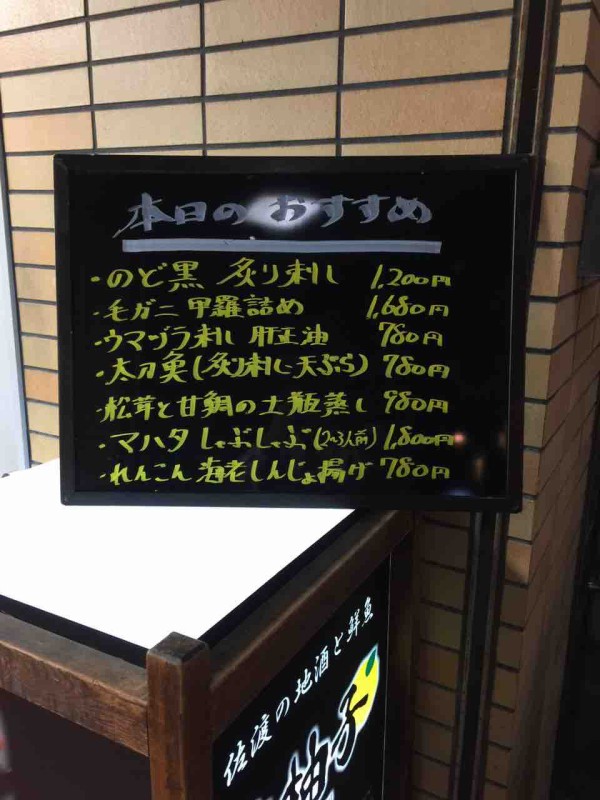 本日のおすすめ
・のど黒 炙り刺し 1,200円
・毛ガニ甲羅詰め 1,680円
・ウマヅラ刺し 肝正油 780円
・太刀魚(炙り刺し・天ぷら) 780円
・松茸と甘鯛の土瓶蒸し 980円
・マハタ しゃぶしゃぶ(2〜3人前) 1,800円
・れんこん 海老しんじょ揚げ 780円
佐渡の地酒と鮮魚
柚子